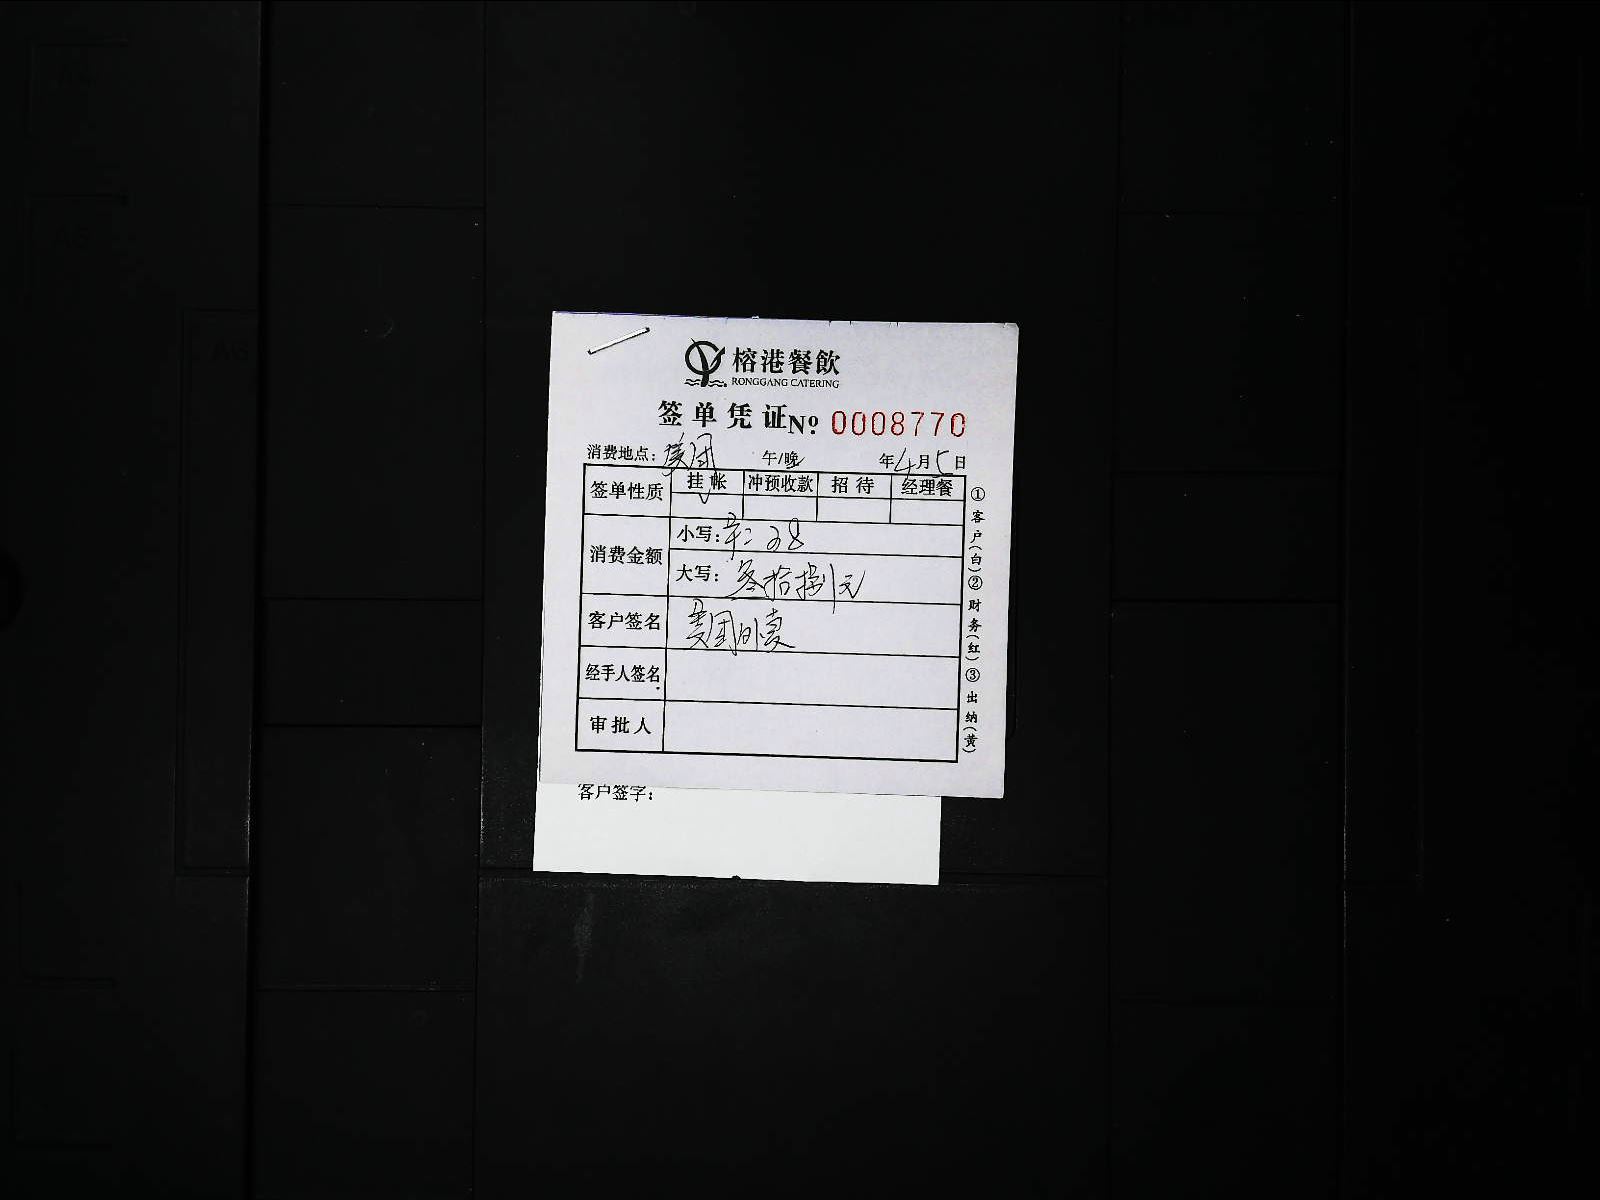 榕港餐飲
RONGGANG CATERING
签单凭证 Nº 0008770
消费地点：美团 午/晚 年4月5日
签单性质 挂帐 冲预收款 招待 经理餐
✓
消费金额 小写： 38
大写：叁拾捌元
客户签名 美团外卖
经手人签名
审批人
①客户（白）②财务（红）③出纳（黄）
客户签字：
A6
A5